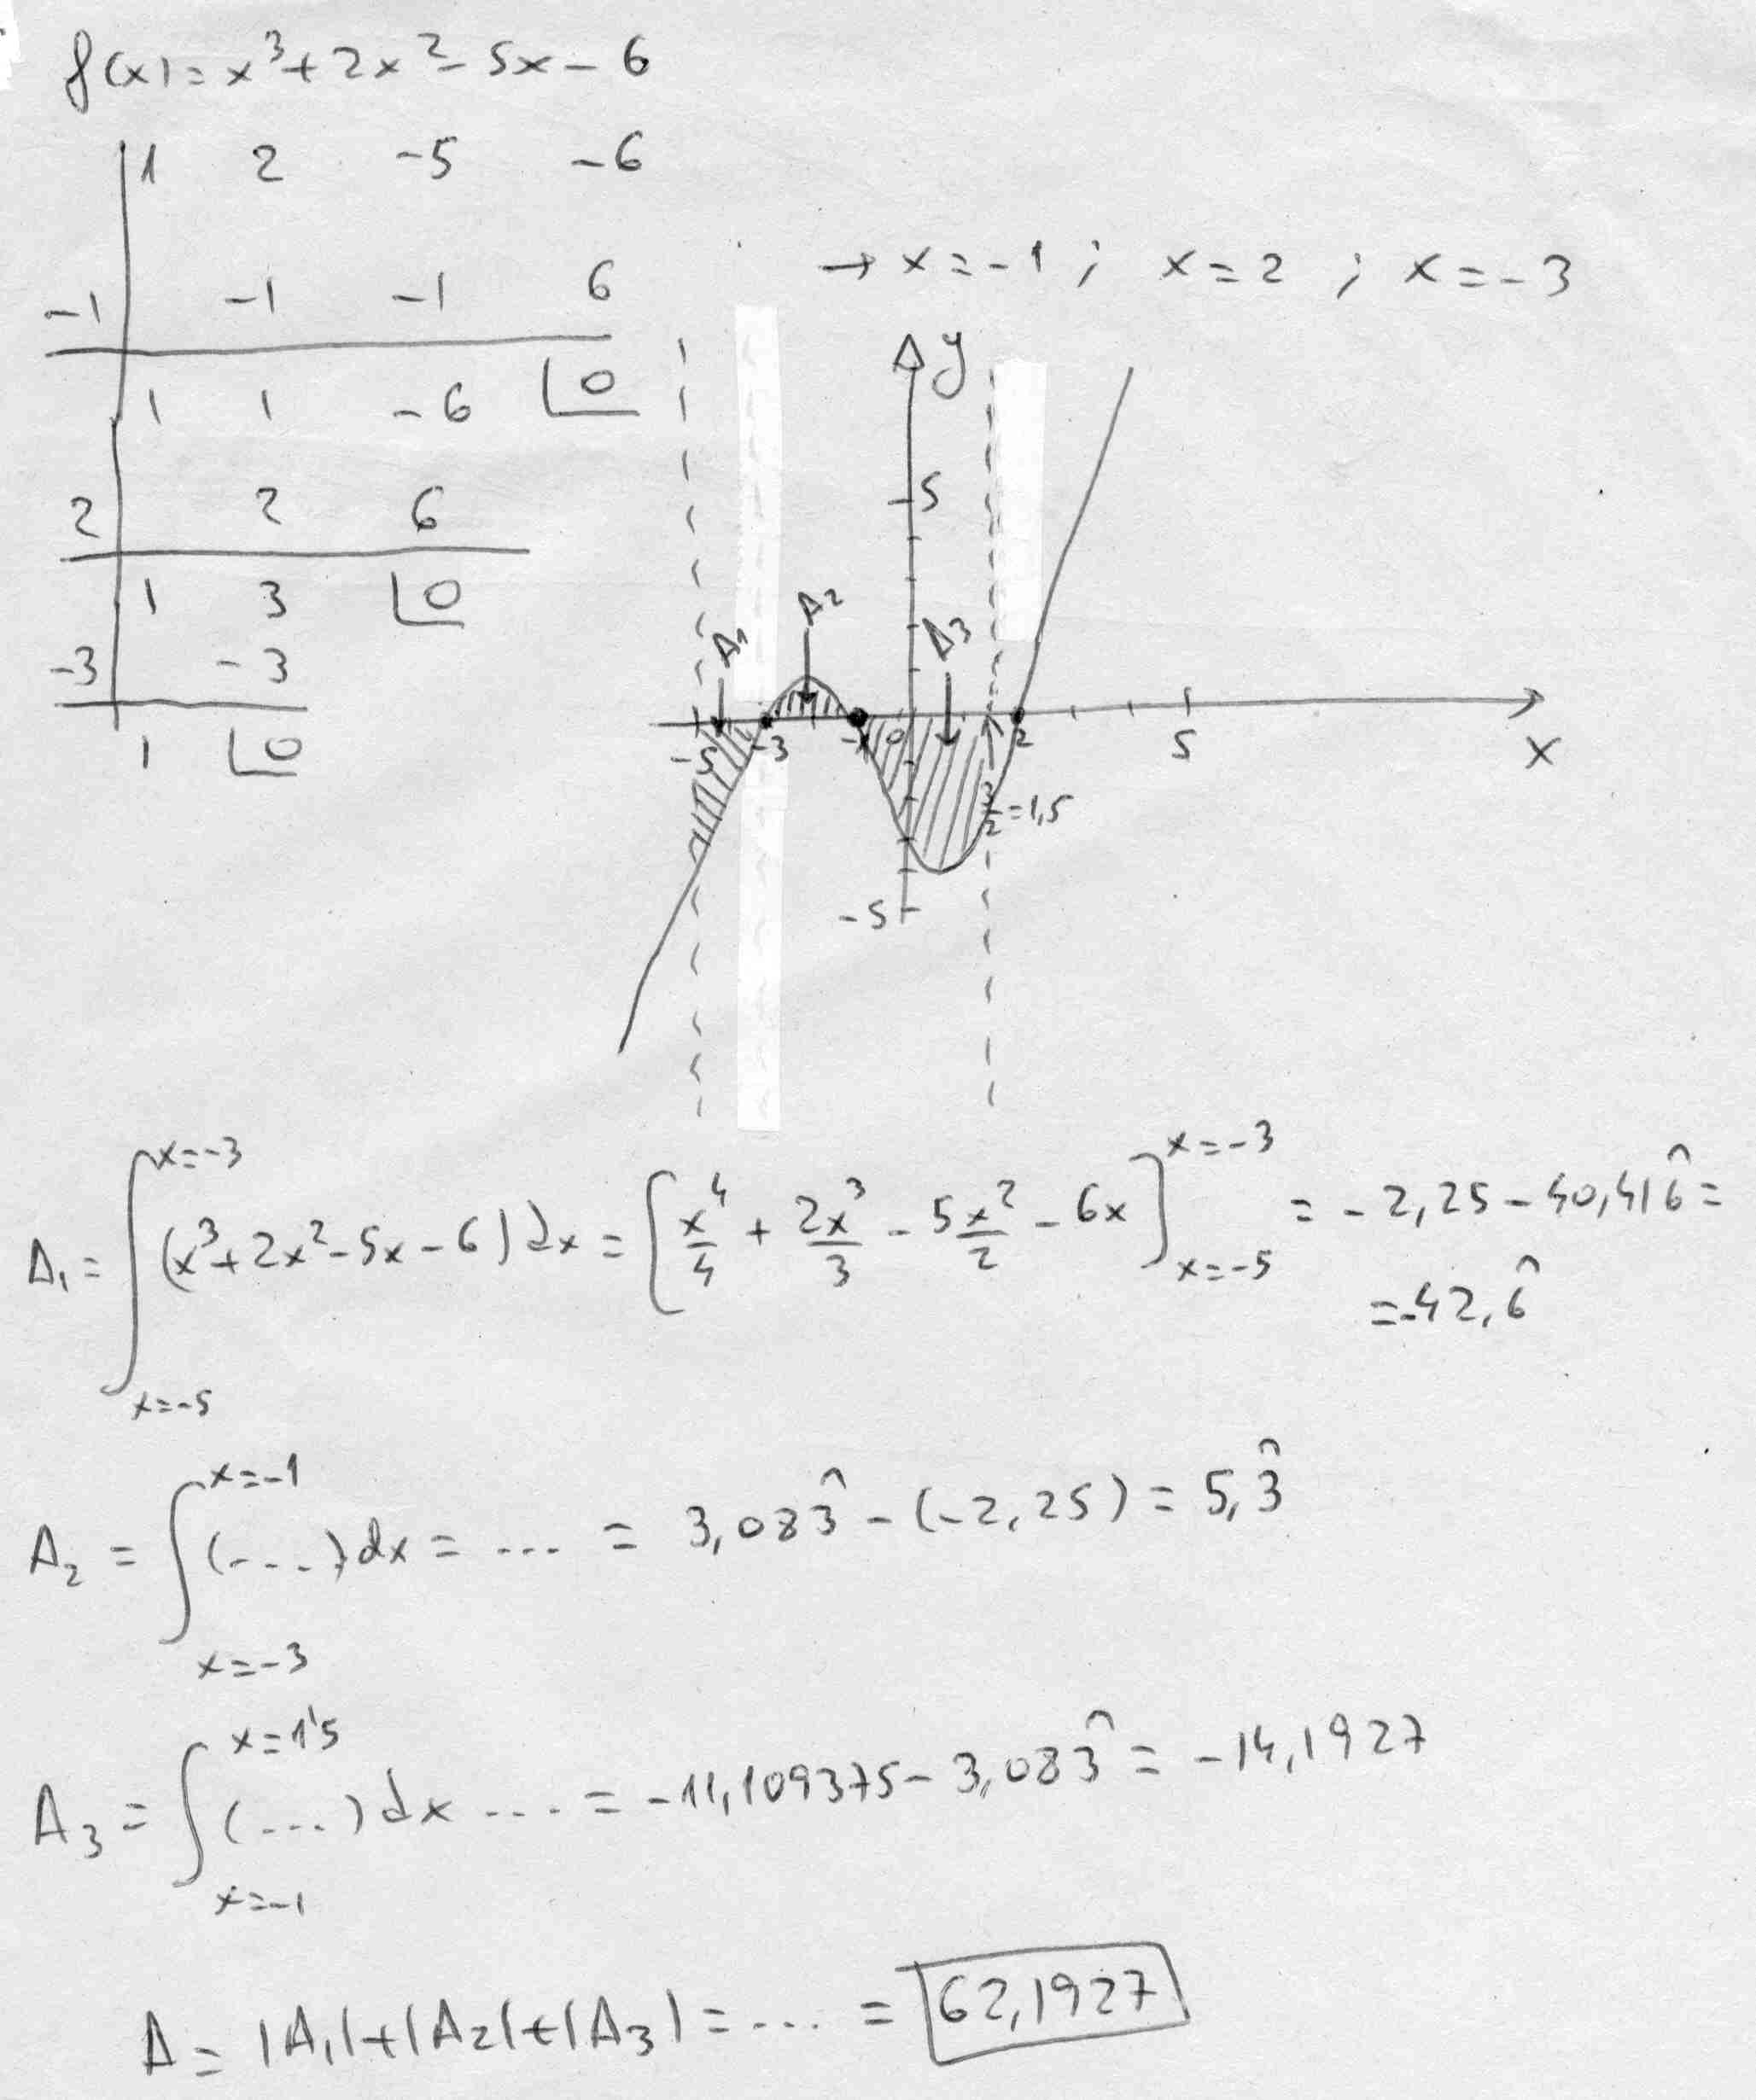 f(x)=x³+2x²-5x-6
1 2 -5 -6
-1 -1 -1 6
1 1 -6 0
2 2 6
1 3 0
-3 -3
1 0
→ x=-1 ; x=2 ; x=-3
y
5
A₂
A₁ A₃
-5 -3 -1 0 2 5 x
3/2=1,5
-5
A₁ = ∫_{x=-5}^{x=-3} (x³+2x²-5x-6)dx = [x⁴/4 + 2x³/3 - 5x²/2 - 6x]_{x=-5}^{x=-3} = -2,25-40,416̂ =
=-42,6̂
A₂ = ∫_{x=-3}^{x=-1} (...)dx = ... = 3,083̂ - (-2,25) = 5,3̂
A₃ = ∫_{x=-1}^{x=1'5} (...)dx .... = -11,109375 - 3,083̂ = -14,1927
A = |A₁|+|A₂|+|A₃| = ... = 62,1927